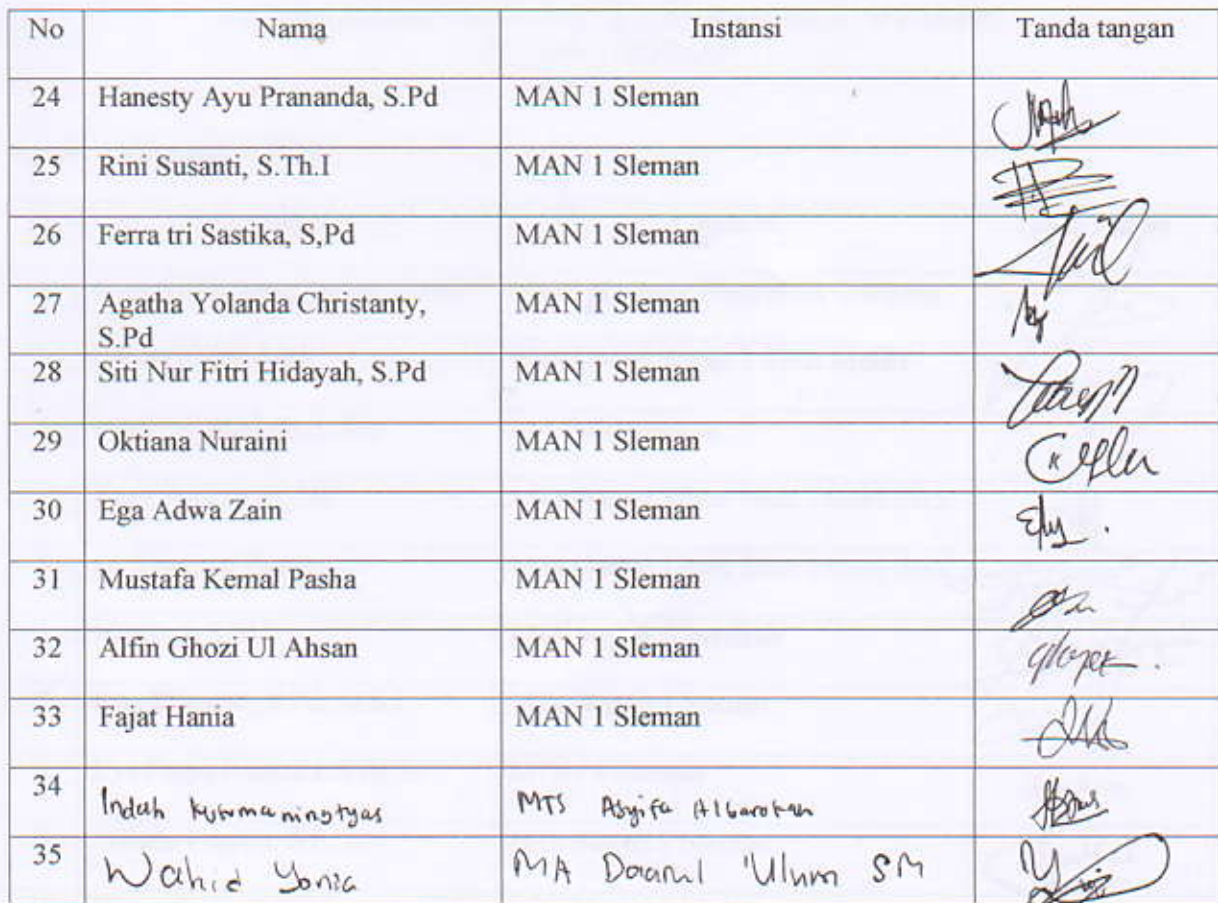 No Nama Instansi Tanda tangan
24 Hanesty Ayu Prananda, S.Pd MAN 1 Sleman
25 Rini Susanti, S.Th.I MAN 1 Sleman
26 Ferra tri Sastika, S,Pd MAN 1 Sleman
27 Agatha Yolanda Christanty, MAN 1 Sleman
S.Pd
28 Siti Nur Fitri Hidayah, S.Pd MAN 1 Sleman
29 Oktiana Nuraini MAN 1 Sleman
30 Ega Adwa Zain MAN 1 Sleman
31 Mustafa Kemal Pasha MAN 1 Sleman
32 Alfin Ghozi Ul Ahsan MAN 1 Sleman
33 Fajat Hania MAN 1 Sleman
34 Indah Kusumaningtyas MTS Asyifa Albarokah
35 Wahid Yonia MA Daarul 'Ulum SM